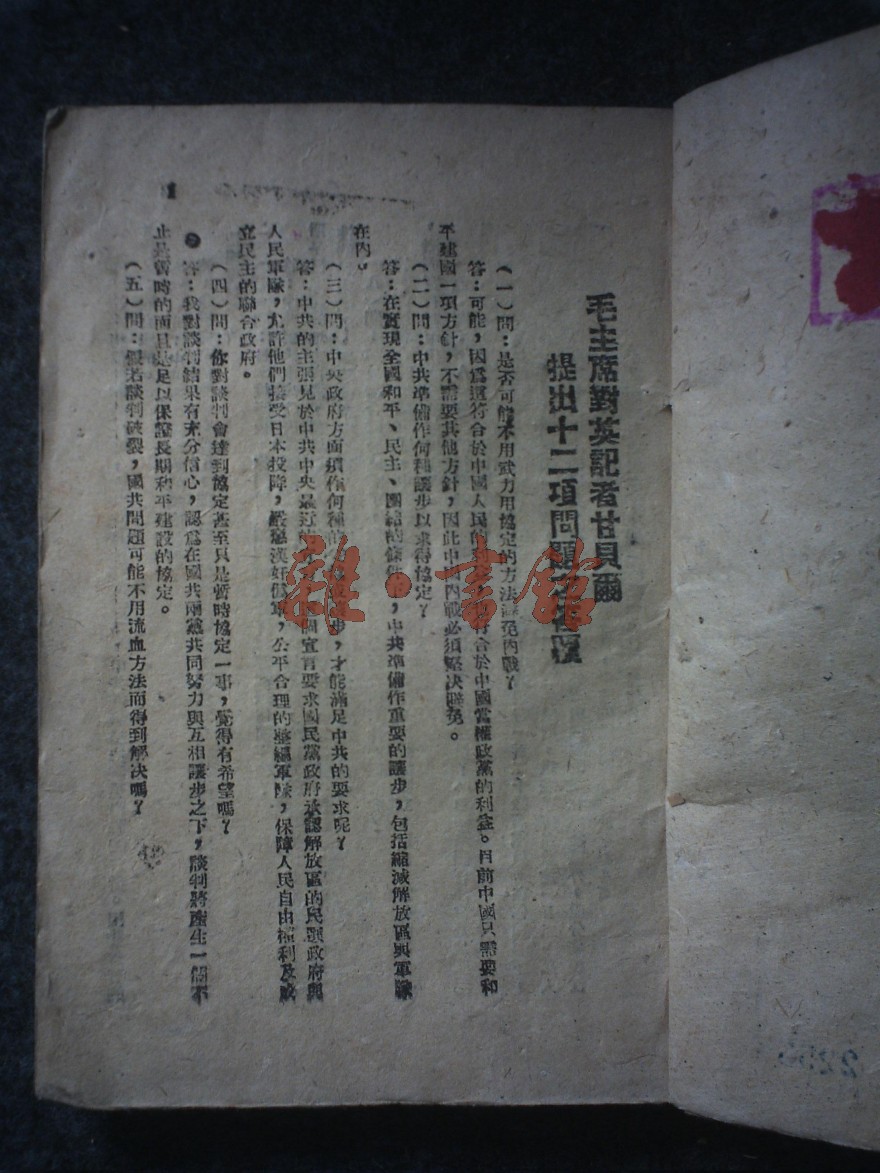 毛主席對英記者甘貝爾
提出十二項問題
（一）問：是否可能不用武力用協定的方法避免內戰？
答：可能，因爲這符合於中國人民的利益，符合於中國當權政黨的利益。目前中國只需要和
平建國一項方針，不需要其他方針，因此中國內戰必須堅決避免。
（二）問：中共準備作何種讓步以求得協定？
答：在實現全國和平、民主、團結的條件下，中共準備作重要的讓步，包括縮減解放區與軍隊
在內。
（三）問：中央政府方面須作何種的讓步，才能滿足中共的要求呢？
答：中共的主張見於中共中央最近的宣言，宣言要求國民黨政府承認解放區的民選政府與
人民軍隊，允許他們接受日本投降，嚴懲漢奸僞軍，公平合理的整編軍隊，保障人民自由權利及成
立民主的聯合政府。
（四）問：你對談判會達到協定甚至只是暫時協定一事，覺得有希望嗎？
答：我對談判結果有充分信心，認爲在國共兩黨共同努力與互相讓步之下，談判將產生一個不
止是暫時的而且是足以保證長期和平建設的協定。
（五）問：假若談判破裂，國共問題可能不用流血方法而得到解決嗎？
1
雜·書館